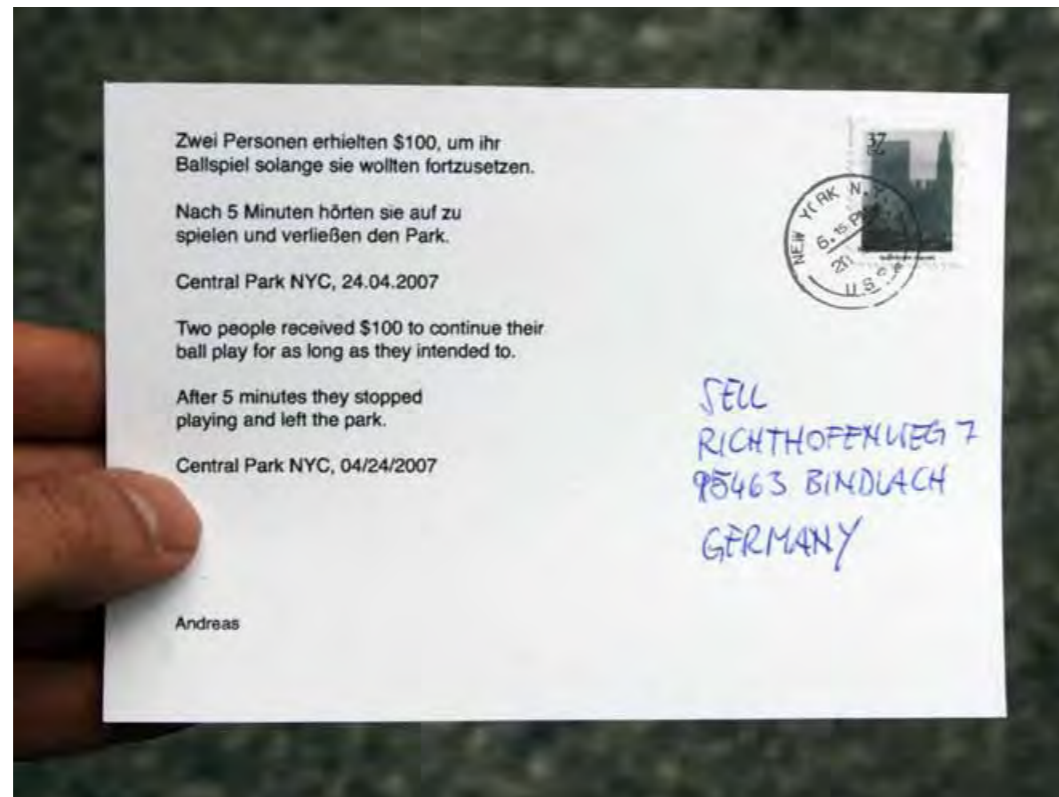 Zwei Personen erhielten $100, um ihr
Ballspiel solange sie wollten fortzusetzen.
Nach 5 Minuten hörten sie auf zu
spielen und verließen den Park.
Central Park NYC, 24.04.2007
Two people received $100 to continue their
ball play for as long as they intended to.
After 5 minutes they stopped
playing and left the park.
Central Park NYC, 04/24/2007
Andreas
37
NEW YORK N.Y.
U.S.
SELL
RICHTHOFENWEG 7
95463 BINDLACH
GERMANY